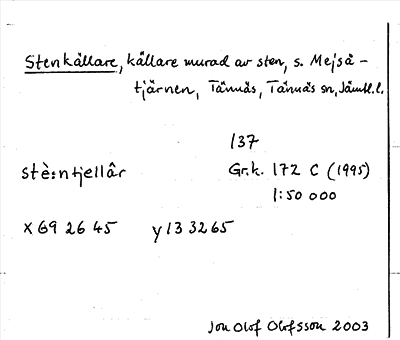 Stenkällare, källare murad av sten, s. Mejså-
tjärnen, Tännäs, Tännäs sn, Jämtl.l.
137
stè:ntjellâr Gr.k. 172 C (1995)
1:50 000
x 69 26 45 y 13 32 65
Jon Olof Olofsson 2003